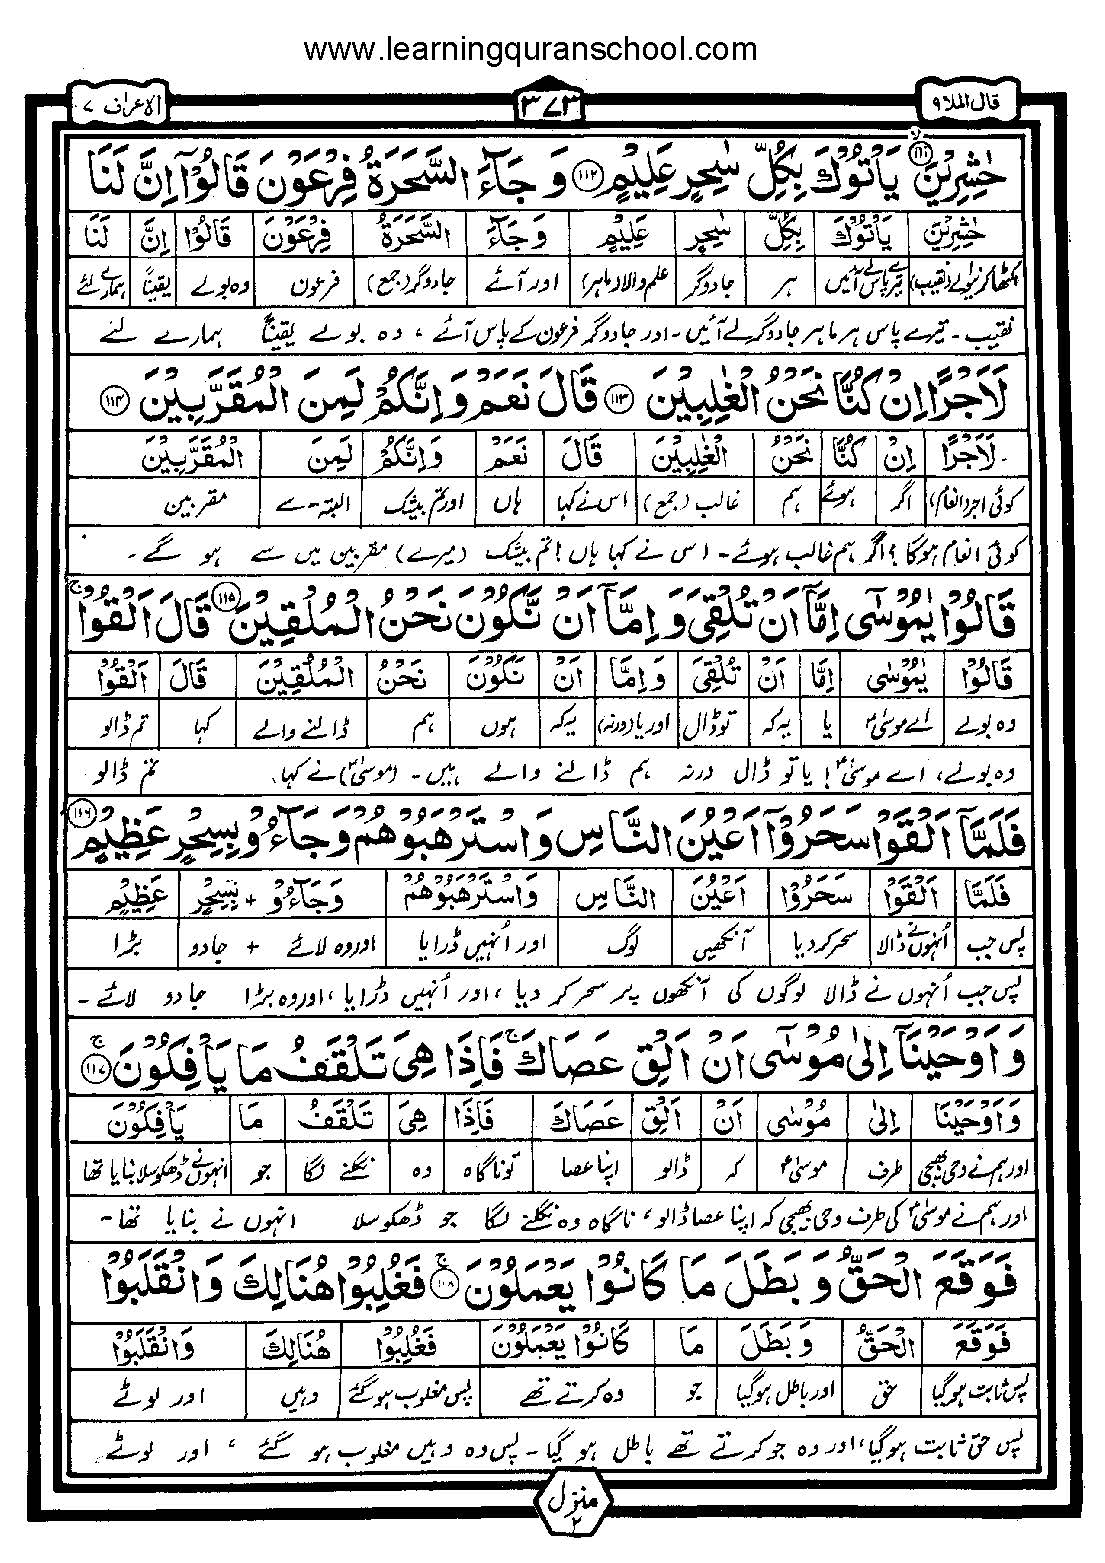 www.learningquranschool.com
قال الملا ۹
۳۷۳
الاعراف ۷
حٰشِرِیْنَ ۱۱۱ یَاْتُوْكَ بِكُلِّ سٰحِرٍ عَلِیْمٍ ۱۱۲ وَ جَآءَ السَّحَرَةُ فِرْعَوْنَ قَالُوْۤا اِنَّ لَنَا
حٰشِرِیْنَ یَاْتُوْكَ بِكُلِّ سٰحِرٍ عَلِیْمٍ وَ جَآءَ السَّحَرَةُ فِرْعَوْنَ قَالُوْۤا اِنَّ لَنَا
اکٹھا کرنیوالے (نقیب) تیرے پاس لے آئیں ہر جادوگر علم والا (ماہر) اور آئے جادوگر (جمع) فرعون وہ بولے یقیناً ہمارے لئے
نقیب۔ تیرے پاس ہر ماہر جادوگر لے آئیں۔ اور جادوگر فرعون کے پاس آئے ، وہ بولے یقیناً ہمارے لئے
لَاَجْرًا اِنْ كُنَّا نَحْنُ الْغٰلِبِیْنَ ۱۱۳ قَالَ نَعَمْ وَ اِنَّكُمْ لَمِنَ الْمُقَرَّبِیْنَ ۱۱۴
لَاَجْرًا اِنْ كُنَّا نَحْنُ الْغٰلِبِیْنَ قَالَ نَعَمْ وَ اِنَّكُمْ لَمِنَ الْمُقَرَّبِیْنَ
کوئی اجر (انعام) اگر ہوئے ہم غالب (جمع) اس نے کہا ہاں اور تم بیشک البتہ۔ سے مقربین
کوئی انعام ہوگا ؟ اگر ہم غالب ہوئے۔ اس نے کہا ہاں ! تم بیشک (میرے) مقربین میں سے ہو گے۔
قَالُوْا یٰمُوْسٰۤى اِمَّاۤ اَنْ تُلْقِیَ وَ اِمَّاۤ اَنْ نَّكُوْنَ نَحْنُ الْمُلْقِیْنَ ۱۱۵ قَالَ اَلْقُوْا ۚ
قَالُوْا یٰمُوْسٰۤى اِمَّا اَنْ تُلْقِیَ وَ اِمَّا اَنْ نَّكُوْنَ نَحْنُ الْمُلْقِیْنَ قَالَ اَلْقُوْا
وہ بولے اے موسیٰؑ یا یہ کہ تو ڈال اور یا (ورنہ) یہ کہ ہوں ہم ڈالنے والے کہا تم ڈالو
وہ بولے، اے موسیٰؑ ! یا تو ڈال ورنہ ہم ڈالنے والے ہیں۔ (موسیٰؑ) نے کہا، تم ڈالو
فَلَمَّاۤ اَلْقَوْا سَحَرُوْۤا اَعْیُنَ النَّاسِ وَ اسْتَرْهَبُوْهُمْ وَ جَآءُوْ بِسِحْرٍ عَظِیْمٍ ۱۱۶
فَلَمَّاۤ اَلْقَوْا سَحَرُوْۤا اَعْیُنَ النَّاسِ وَ اسْتَرْهَبُوْهُمْ وَ جَآءُوْ + بِسِحْرٍ عَظِیْمٍ
پس جب اُنہوں نے ڈالا سحر کر دیا آنکھیں لوگ اور اُنہیں ڈرایا اور وہ لائے + جادو بڑا
پس جب اُنہوں نے ڈالا لوگوں کی آنکھوں پر سحر کر دیا ، اور اُنہیں ڈرایا ، اور وہ بڑا جادو لائے۔
وَ اَوْحَیْنَاۤ اِلٰى مُوْسٰۤى اَنْ اَلْقِ عَصَاكَ ۚ فَاِذَا هِیَ تَلْقَفُ مَا یَاْفِكُوْنَ ۚ ۱۱۷
وَ اَوْحَیْنَا اِلٰى مُوْسٰى اَنْ اَلْقِ عَصَاكَ فَاِذَا هِیَ تَلْقَفُ مَا یَاْفِكُوْنَ
اور ہم نے وحی بھیجی طرف موسیٰؑ کہ ڈالو اپنا عصا تو ناگاہ وہ نگلنے لگا جو انہوں نے ڈھکوسلا بنایا تھا
اور ہم نے موسیٰؑ کی طرف وحی بھیجی کہ اپنا عصا ڈالو ، ناگاہ وہ نگلنے لگا جو ڈھکوسلا انہوں نے بنایا تھا۔
فَوَقَعَ الْحَقُّ وَ بَطَلَ مَا كَانُوْا یَعْمَلُوْنَ ۚ ۱۱۸ فَغُلِبُوْا هُنَالِكَ وَ انْقَلَبُوْا
فَوَقَعَ الْحَقُّ وَ بَطَلَ مَا كَانُوْا یَعْمَلُوْنَ فَغُلِبُوْا هُنَالِكَ وَ انْقَلَبُوْا
پس ثابت ہوگیا حق اور باطل ہوگیا جو وہ کرتے تھے پس مغلوب ہوگئے وہیں اور لوٹے
پس حق ثابت ہوگیا، اور وہ جو کرتے تھے باطل ہو گیا۔ پس وہ وہیں مغلوب ہو گئے ، اور لوٹے
منزل ۲